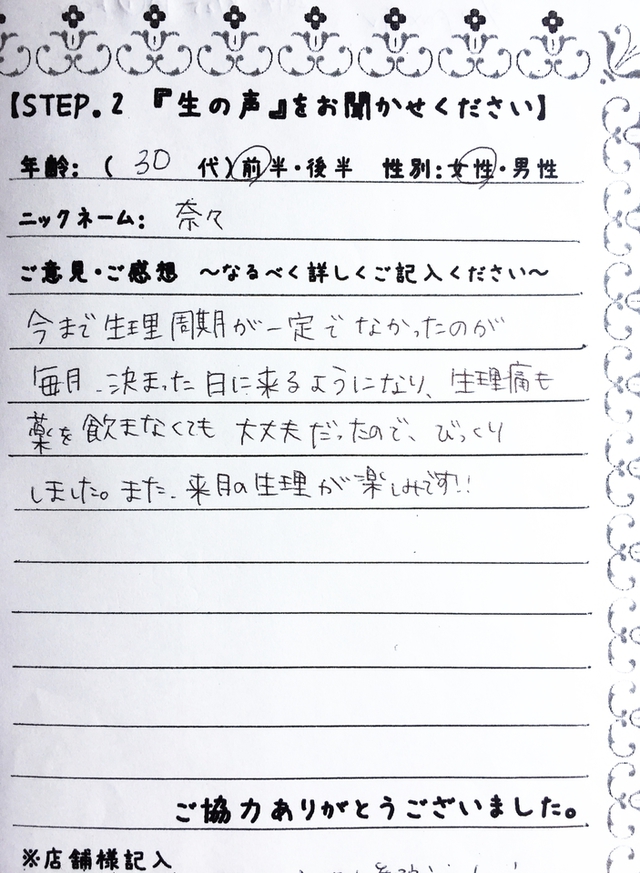 【STEP.2 『生の声』をお聞かせください】
年齢:(30 代)前半・後半 性別:女性・男性
ニックネーム: 奈々
ご意見・ご感想 〜なるべく詳しくご記入ください〜
今まで生理周期が一定でなかったのが
毎月、決まった日に来るようになり、生理痛も
薬を飲まなくても大丈夫だったので、びっくり
しました。また、来月の生理が楽しみです!!
ご協力ありがとうございました。
※店舗様記入